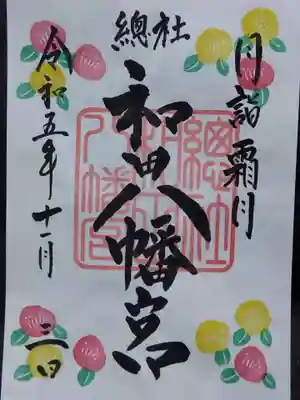 月詣 霜月
總社
和田八幡宮
令和五年十一月三日
總社
和田
八幡宮